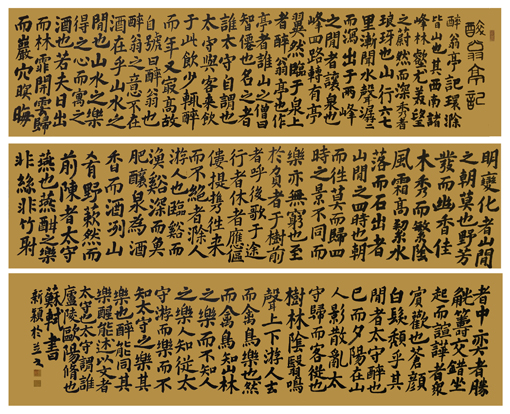 醉翁亭記
醉翁亭記環滁
皆山也其西南諸
峰林壑尤美望
之蔚然而深秀者
琅玡也山行六七
里漸聞水聲潺潺
而瀉出于兩峰
之間者讓泉也
峰回路轉有亭
翼然臨于泉上
者醉翁亭也作
亭者誰山之僧曰
智僊也名之者
誰太守自謂也
太守與客來飲
于此飲少輒醉
而年又寂高故
自號曰醉翁也
醉翁之意不在
酒在乎山水之
間也山水之樂
得之心而寓之
酒也若夫日出
而林霏開雲歸
而巖穴暝晦
明變化者山間
之朝莫也野芳
發而幽香佳
木秀而繁陰
風霜高絜水
落而石出者
山間之四時也朝
而往莫而歸四
時之景不同而
樂亦無窮也至
於負者于樹前
者乎後歌于途
行者休者應區
僂提攜往來
而不絶者滁人
游人也臨谿而
漁谿深而魚
肥釀泉爲酒
香而酒洌山
肴野蔌然而
前陳者太守
燕也燕酣之樂
非絲非竹射
者中弈者勝
觥籌交錯坐
起而諠譁者衆
賓歡也蒼顔
白髮頹乎其
間者太守醉也
已而夕陽在山
人影散亂太
守歸而客從也
樹林陰翳鳴
聲上下游人去
而禽鳥樂也然
而禽鳥知山林
之樂而不知人
之樂人知從太
守游而樂而不
知太守之樂其
樂也醉能同其
樂醒能述以文者
太守也太守謂誰
廬陵歐陽脩也
蘇軾書